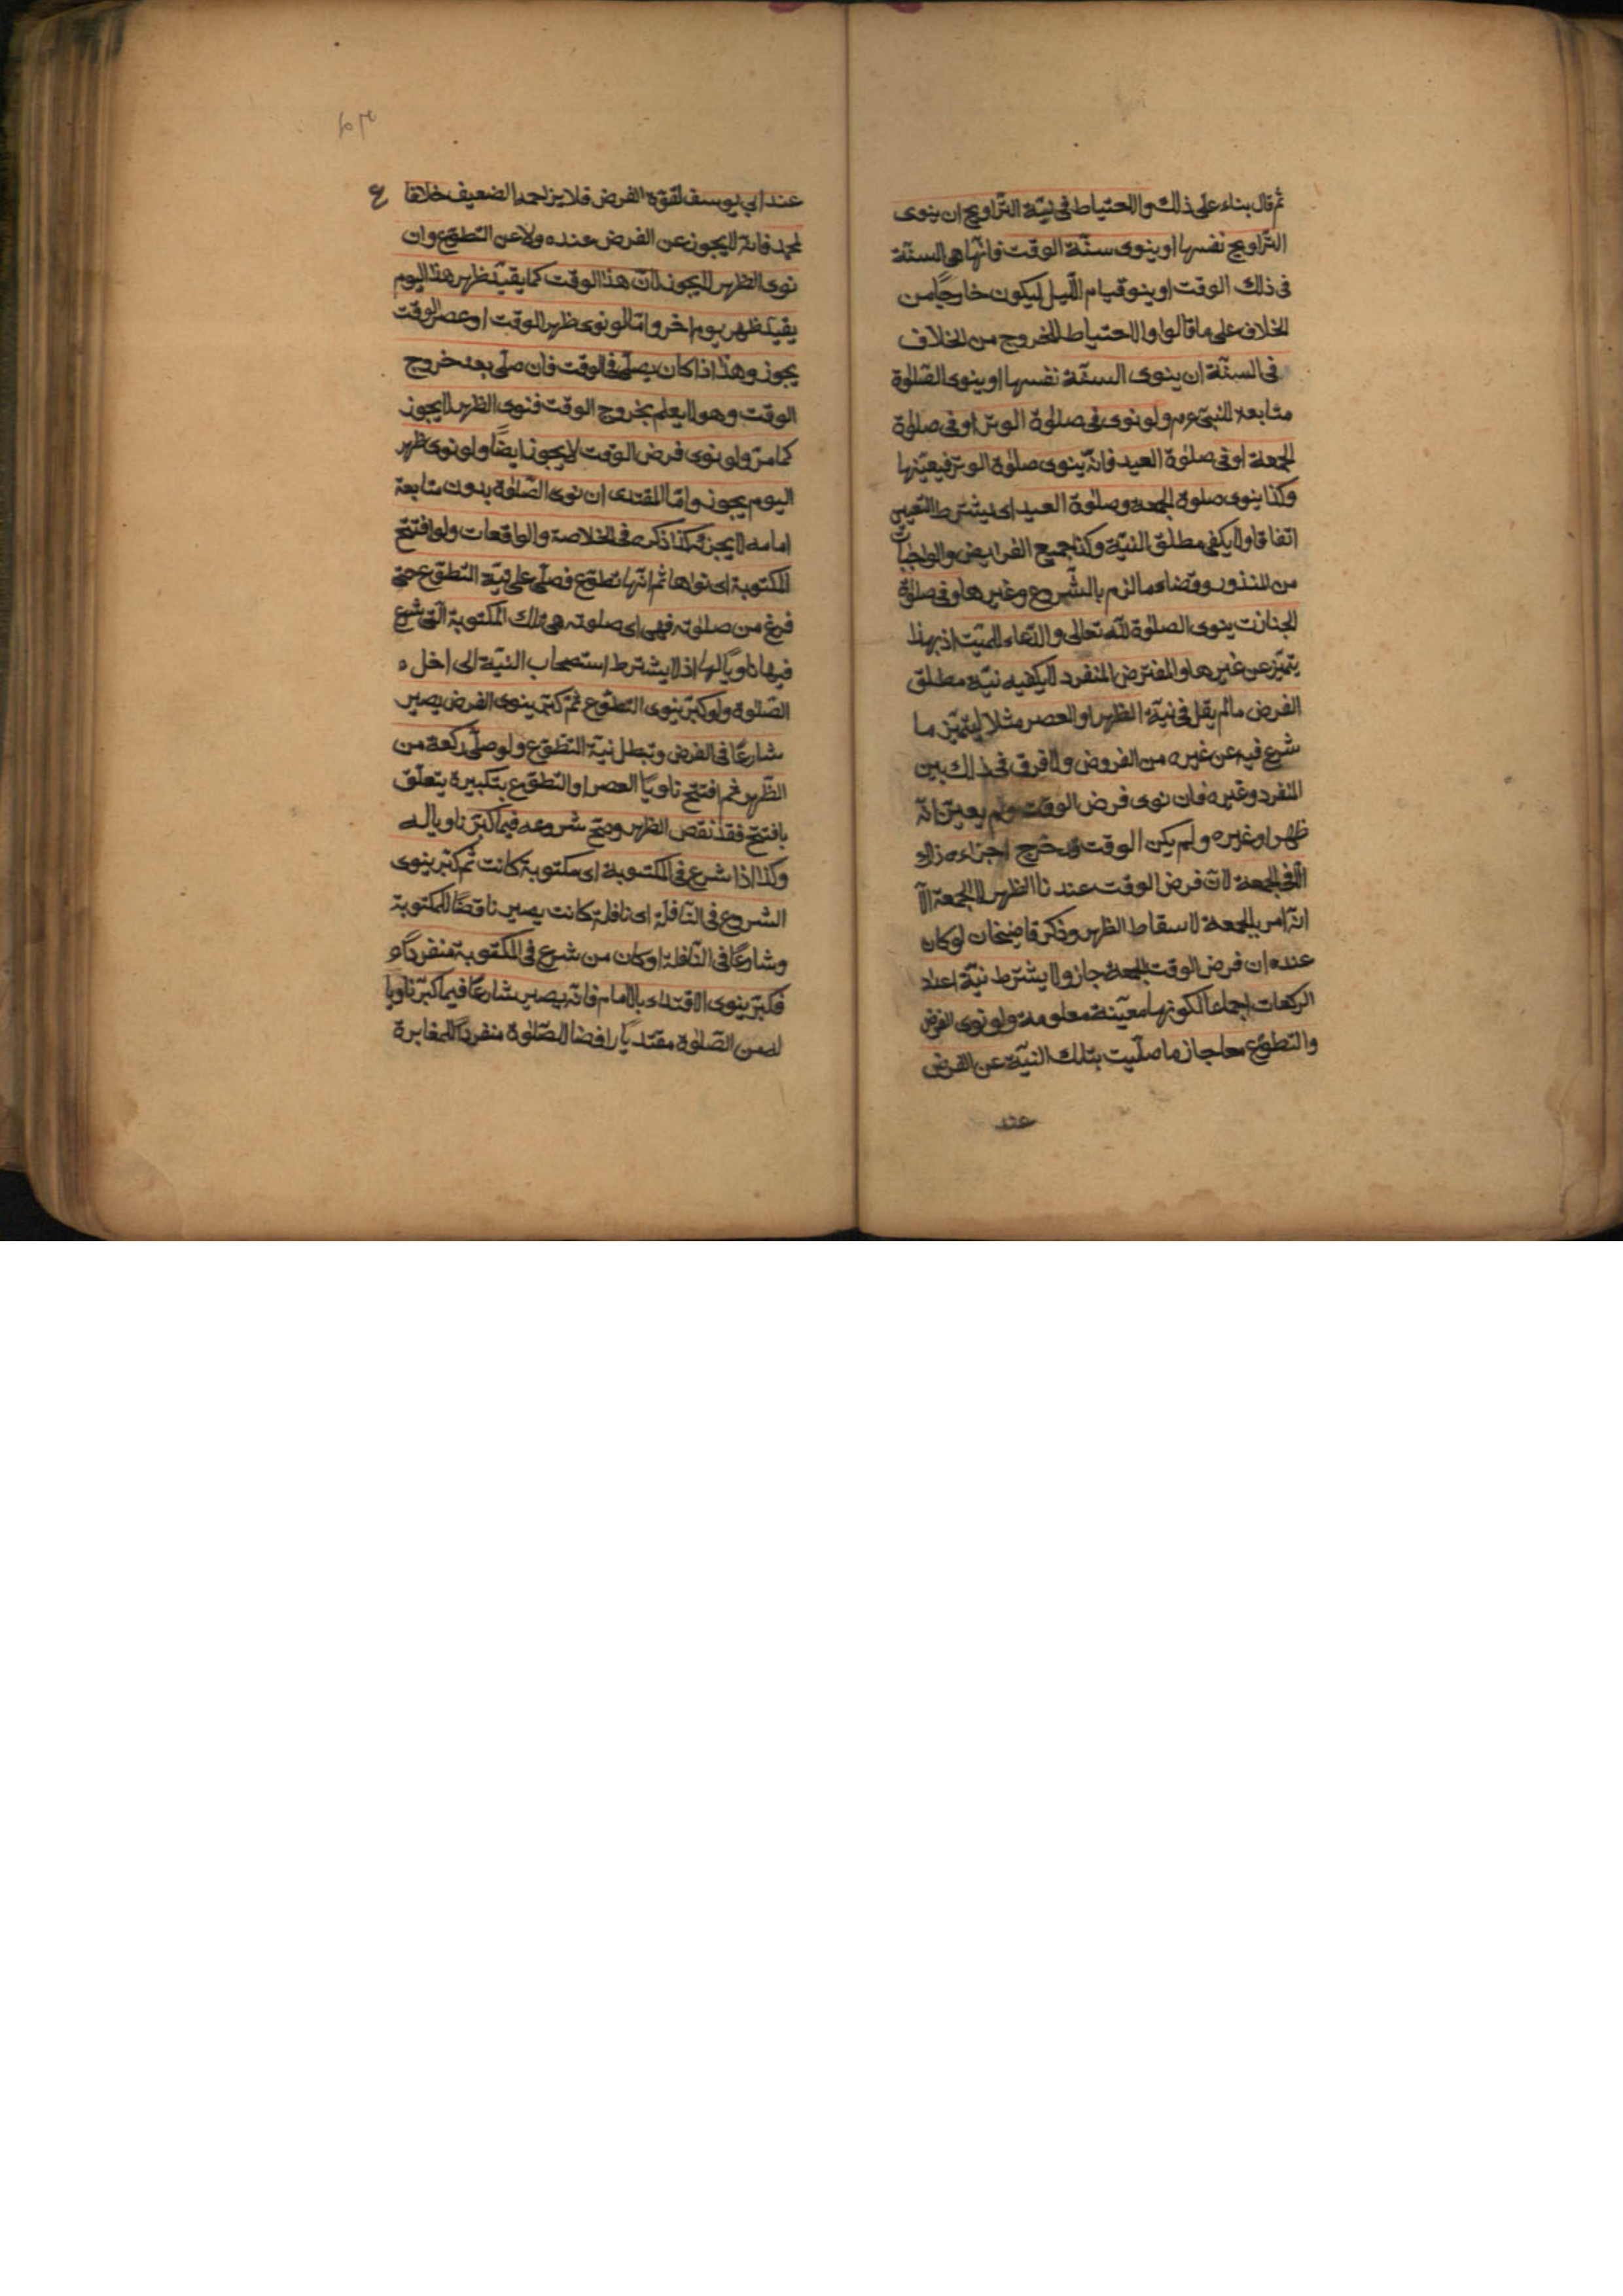 ثم قال بناء على ذلك والاحتياط في نيّة التّراويح ان ينوى
التّراويح نفسها او ينوى سنّة الوقت فانّها هي السنّة
في ذلك الوقت او ينو قيام اللّيل ليكون خارجًا من
الخلاف على ما قالوا والاحتياط للخروج من الخلاف
في السنّة ان ينوى السنّة نفسها او ينوى الصّلوة
متابعة للنبيّ عم ولو نوى في صلوة الوتر او في صلوة
الجمعة او في صلوة العيد فانّه ينوى صلوة الوتر فيعيّنها
وكذا ينوى صلوة الجمعة وصلوة العيد اى يشترط التّعيين
اتفاقا ولا يكفى مطلق النيّة وكذا جميع الفرايض والواجبات
من المنذور وقضاء ما لزم بالشّروع وغيرها وفي صلوة
الجنازت ينوى الصلوة لله تعالى والدّعاء للميّت اذ بهذا
يتميّز عن غيرها والمفترض المنفرد لا يكفيه نيّة مطلق
الفرض ما لم يقل في نيّة الظهر او العصر مثلا ليتميّز ما
شرع فيه عن غيره من الفروض ولا فرق في ذلك بين
المنفرد وغيره فان نوى فرض الوقت ولم يعيّن انّه
ظهر او غيره ولم يكن الوقت قد خرج اجزاءه ذلك
الّا في الجمعة لانّ فرض الوقت عندنا الظهر لا الجمعة الّا
انّه امر بالجمعة لاسقاط الظهر وذكر قاضيخان لو كان
عنده ان فرض الوقت الجمعة جاز ولا يشترط نيّة اعداد
الركعات اجماعا لكونها معيّنة معلومة ولو نوى الفرض
والتطوّع معا جاز ما صلّيت بتلك النيّة عن الفرض
عند
عند ابي يوسف لقوّة الفرض فلا يزاحمه الضعيف خلافا
لمحمد فانّه لا يجوز عن الفرض عنده ولا عن التّطوّع وان
نوى الظهر لا يجوز لانّ هذا الوقت كما يقبّل ظهر هذا اليوم
يقبل ظهر يوم اخر وامّا لو نوى ظهر الوقت او عصر الوقت
يجوز وهذا اذا كان يصلّى في الوقت فان صلّى بعد خروج
الوقت وهو لا يعلم بخروج الوقت فنوى الظهر لا يجوز
كما مرّ ولو نوى فرض الوقت لا يجوز ايضًا ولو نوى ظهر
اليوم يجوز وامّا المقتدى ان نوى الصّلوة بدون متابعة
امامه لا يجزئه كذا ذكره في الخلاصة والواقعات ولو افتتح
المكتوبة اى نواها ثم انّها تطوّع فصلّى على نيّة التّطوّع حتى
فرغ من صلوته فهي اى صلوته هي تلك المكتوبة الّتي شرع
فيها ناويًا لها اذ لا يشترط استصحاب النيّة الى اخل ه
الصّلوة ولو كبّر ينوى التطوّع ثمّ كبّر ينوى الفرض يصير
شارعًا في الفرض وتبطل نيّة التّطوّع ولو صلّى ركعة من
الظّهر ثم افتتح ناويًا العصر او التّطوّع بتكبيرة يتعلّق
بافتتح فقد نقض الظهر وصحّ شروعه فيما كبّر ناويا له
وكذا اذا شرع في المكتوبة اى مكتوبة كانت ثم كبّر ينوى
الشروع في النّافلة اى نافلة كانت يصير ناقضًا للمكتوبة
وشارعًا في النّافلة او كان من شرع في المكتوبة منفردًا و
فكبّر ينوى الاقتداء بالامام فانّه يصير شارعًا فيما كبّر ناويا
له من الصّلوة مقتديًا رافضا للصّلوة منفردًا للمغايرة